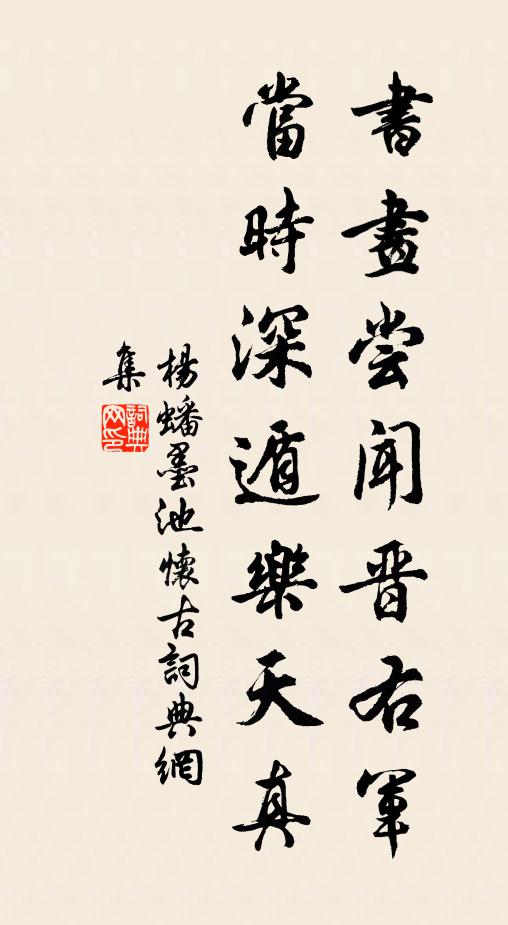 書畫尝闻晋右軍
當時深遁樂天真
楊蟠墨池懷古詞典網
集
詞典
网印